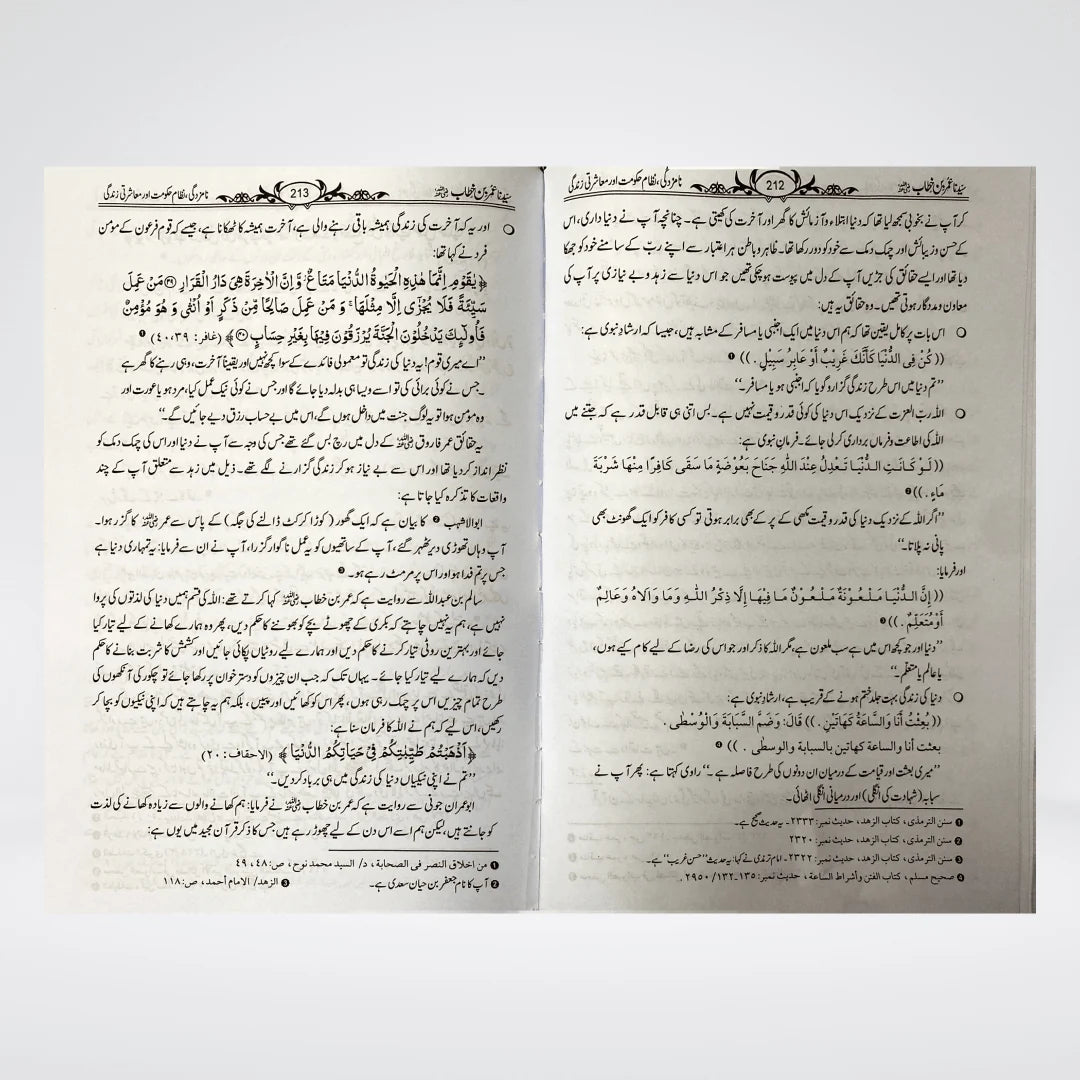 سیّدنا عمر بن خطاب رضی اللہ عنہ 212 نامزدگی، نظام حکومت اور معاشرتی زندگی
کر آپ نے بخوبی سمجھ لیا تھا کہ دنیا ابتلاء و آزمائش کا گھر اور آخرت کی کھیتی ہے۔ چنانچہ آپ نے دنیا داری، اس
کے حسن و زیبائش اور چمک دمک سے خود کو دور رکھا تھا۔ ظاہر و باطن ہر اعتبار سے اپنے ربّ کے سامنے خود کو جھکا
دیا تھا اور ایسے حقائق کی جڑیں آپ کے دل میں پیوست ہو چکی تھیں جو اس دنیا سے زہد و بے نیازی پر آپ کی
معاون و مددگار ہوتی تھیں۔ وہ حقائق یہ ہیں:
○ اس بات پر کامل یقین تھا کہ ہم اس دنیا میں ایک اجنبی یا مسافر کے مشابہ ہیں، جیسا کہ ارشاد نبوی ہے:
((كُنْ فِى الدُّنْيَا كَأَنَّكَ غَرِيْبٌ أَوْ عَابِرُ سَبِيْلٍ .)) ❶
’’تم دنیا میں اس طرح زندگی گزارو گویا کہ اجنبی ہو یا مسافر۔‘‘
○ اللہ ربّ العزت کے نزدیک اس دنیا کی کوئی قدر و قیمت نہیں ہے۔ بس اتنی ہی قابل قدر ہے کہ جتنے میں
اللہ کی اطاعت و فرماں برداری کر لی جائے۔ فرمانِ نبوی ہے:
((لَوْ كَانَتِ الدُّنْيَا تَعْدِلُ عِنْدَ اللّٰهِ جَنَاحَ بَعُوْضَةٍ مَا سَقَى كَافِرًا مِنْهَا شَرْبَةَ
مَاءٍ .)) ❷
’’اگر اللہ کے نزدیک دنیا کی قدر و قیمت مکھی کے پر کے بھی برابر ہوتی تو کسی کافر کو ایک گھونٹ بھی
پانی نہ پلاتا۔‘‘
اور فرمایا:
((إِنَّ الدُّنْيَا مَلْعُوْنَةٌ مَلْعُوْنٌ مَا فِيْهَا إِلَّا ذِكْرُ اللّٰهِ وَمَا وَالَاهُ وَعَالِمٌ
أَوْ مُتَعَلِّمٌ .)) ❸
’’دنیا اور جو کچھ اس میں ہے سب ملعون ہے، مگر اللہ کا ذکر اور جو اس کی رضا کے لیے کام کیے ہوں،
یا عالم یا متعلّم۔‘‘
○ دنیا کی زندگی بہت جلد ختم ہونے کے قریب ہے، ارشادِ نبوی ہے:
((بُعِثْتُ أَنَا وَالسَّاعَةُ كَهَاتَيْنِ .)) قَالَ: وَضَمَّ السَّبَابَةَ وَالْوُسْطٰى .
بعثت أنا والساعة كهاتين بالسبابة والوسطى .)) ❹
’’میری بعثت اور قیامت کے درمیان ان دونوں کی طرح فاصلہ ہے۔‘‘ راوی کہتا ہے: پھر آپ نے
سبابہ (شہادت کی انگلی) اور درمیانی انگلی اٹھائی۔
❶ سنن الترمذی، کتاب الزهد، حدیث نمبر: ۲۳۳۳۔ یہ حدیث صحیح ہے۔
❷ سنن الترمذی، کتاب الزهد، حدیث نمبر: ۲۳۲۰
❸ سنن الترمذی، کتاب الزهد، حدیث نمبر: ۲۳۲۲۔ امام ترمذی نے کہا: یہ حدیث ’’حسن غریب‘‘ ہے۔
❹ صحیح مسلم، کتاب الفتن وأشراط الساعة، حدیث نمبر: ۱۳۲۔۱۳۵/ ۲۹۵۰.
سیّدنا عمر بن خطاب رضی اللہ عنہ 213 نامزدگی، نظام حکومت اور معاشرتی زندگی
○ اور یہ کہ آخرت کی زندگی ہمیشہ باقی رہنے والی ہے، آخرت ہمیشہ کا ٹھکانا ہے، جیسے کہ قوم فرعون کے مومن
فرد نے کہا تھا:
﴿يٰقَوْمِ اِنَّمَا هٰذِهِ الْحَيٰوةُ الدُّنْيَا مَتَاعٌ ۫ وَّاِنَّ الْاٰخِرَةَ هِيَ دَارُ الْقَرَارِ ۝۳۹ مَنْ عَمِلَ
سَيِّئَةً فَلَا يُجْزٰٓى اِلَّا مِثْلَهَا ۚ وَ مَنْ عَمِلَ صَالِحًا مِّنْ ذَكَرٍ اَوْ اُنْثٰى وَ هُوَ مُؤْمِنٌ
فَاُولٰٓئِكَ يَدْخُلُوْنَ الْجَنَّةَ يُرْزَقُوْنَ فِيْهَا بِغَيْرِ حِسَابٍ ۝۴۰﴾ (غافر: ۳۹، ۴۰) ❶
’’اے میری قوم! یہ دنیا کی زندگی تو معمولی فائدے کے سوا کچھ نہیں اور یقیناً آخرت، وہی رہنے کا گھر ہے
۔ جس نے کوئی برائی کی تو اسے ویسا ہی بدلہ دیا جائے گا اور جس نے کوئی نیک عمل کیا، مرد ہو یا عورت اور
وہ مؤمن ہوا تو یہ لوگ جنت میں داخل ہوں گے، اس میں بے حساب رزق دیے جائیں گے۔‘‘
یہ حقائق عمر فاروق رضی اللہ عنہ کے دل میں رچ بس گئے تھے جس کی وجہ سے آپ نے دنیا اور اس کی چمک دمک کو
نظر انداز کر دیا تھا اور اس سے بے نیاز ہو کر زندگی گزارنے لگے تھے۔ ذیل میں زہد سے متعلق آپ کے چند
واقعات کا تذکرہ کیا جاتا ہے:
ابوالاشہب ❷ کا بیان ہے کہ ایک گھور (کوڑا کرکٹ ڈالنے کی جگہ) کے پاس سے عمر رضی اللہ عنہ کا گزر ہوا۔
آپ وہاں تھوڑی دیر ٹھہر گئے، آپ کے ساتھیوں کو یہ عمل ناگوار گزرا، آپ نے ان سے فرمایا: یہ تمہاری دنیا ہے
جس پر تم فدا ہو اور اس پر مر مٹ رہے ہو۔ ❸
سالم بن عبداللہ سے روایت ہے کہ عمر بن خطاب رضی اللہ عنہ کہا کرتے تھے: اللہ کی قسم ہمیں دنیا کی لذتوں کی پروا
نہیں ہے، ہم یہ نہیں چاہتے کہ بکری کے چھوٹے بچے کو بھوننے کا حکم دیں، پھر وہ ہمارے کھانے کے لیے تیار کیا
جائے اور بہترین روٹی تیار کرنے کا حکم دیں اور ہمارے لیے روٹیاں پکائی جائیں اور کشمش کا شربت بنانے کا حکم
دیں کہ ہمارے لیے تیار کیا جائے۔ یہاں تک کہ جب ان چیزوں کو دسترخوان پر رکھا جائے تو چکور کی آنکھوں کی
طرح تمام چیزیں اس پر چمک رہی ہوں، پھر اس کو کھائیں اور پییں، بلکہ ہم یہ چاہتے ہیں کہ اپنی نیکیوں کو بچا کر
رکھیں، اس لیے کہ ہم نے اللہ کا فرمان سنا ہے:
﴿اَذْهَبْتُمْ طَيِّبٰتِكُمْ فِيْ حَيَاتِكُمُ الدُّنْيَا﴾ (الاحقاف: ۲۰)
’’تم نے اپنی نیکیاں دنیا کی زندگی میں ہی برباد کر دیں۔‘‘
ابو عمران جونی سے روایت ہے کہ عمر بن خطاب رضی اللہ عنہ نے فرمایا: ہم کھانے والوں سے زیادہ کھانے کی لذت
کو جانتے ہیں، لیکن ہم اسے اس دن کے لیے چھوڑ رہے ہیں جس کا ذکر قرآن مجید میں یوں ہے:
❶ من اخلاق النصر فی الصحابة، د/ السید محمد نوح، ص: ۴۸، ۴۹
❷ آپ کا نام جعفر بن حیان سعدی ہے۔ ❸ الزهد/ الامام أحمد، ص: ۱۱۸